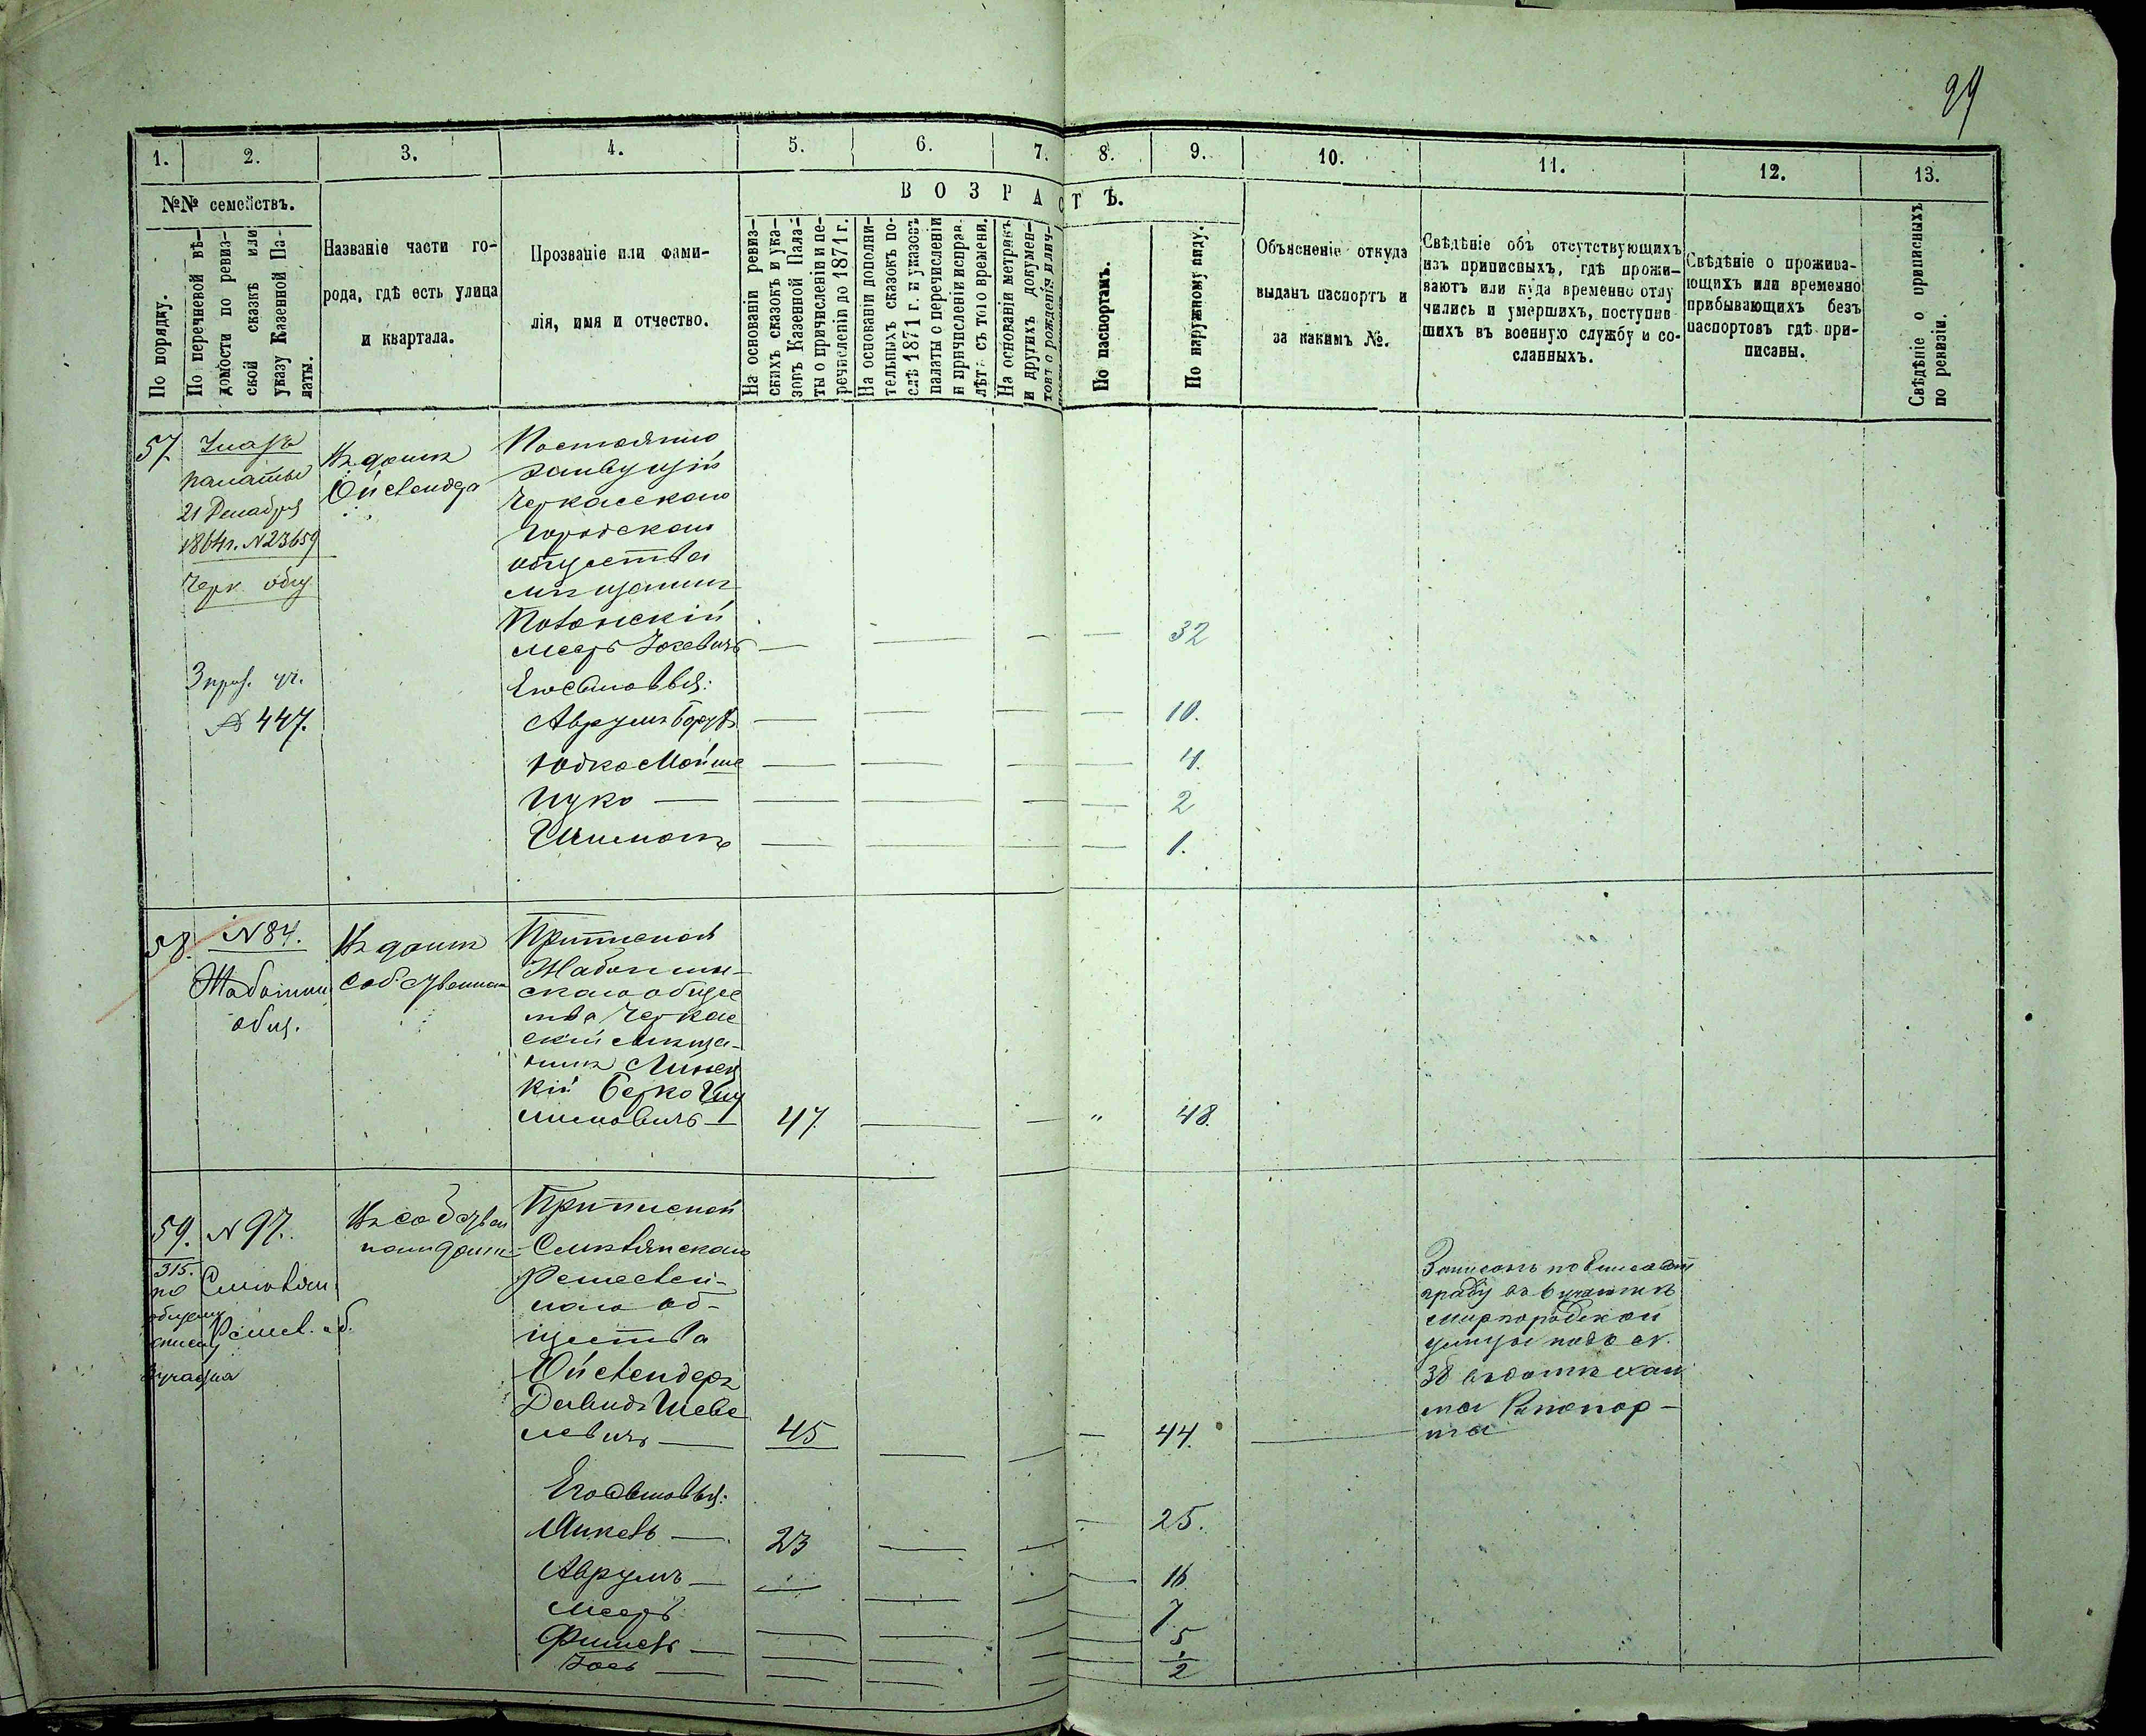 29
1. 2. 3. 4. 5. 6. 7. 8. 9. 10. 11. 12. 13.
№№ семействъ.
По порядку.
По перечневой вѣ-
домости по ревиз-
ской сказкѣ или
указу Казенной Па-
латы.
Названіе части го-
рода, гдѣ есть улица
и квартала.
Прозваніе или фами-
лія, имя и отчество.
ВОЗРАСТЪ.
На основаніи ревиз-
скихъ сказокъ и ука-
зовъ Казенной Пала-
ты о причисленіи и пе-
речисленіи до 1871 г.
На основаніи дополни-
тельныхъ сказокъ по-
слѣ 1871 г. и указовъ
палаты о перечисленіи
и причисленіи исправ.
лѣтъ съ того времени.
На основаніи метрикъ
и другихъ докумен-
товъ о рожденія и лич-
По паспортамъ.
По наружному виду.
Объясненіе откуда
выданъ паспортъ и
за какимъ №.
Свѣдѣніе объ отсутствующихъ
изъ приписныхъ, гдѣ прожи-
ваютъ или куда временно отлу
чились и умершихъ, поступив
шихъ въ военную службу и со-
сланныхъ.
Свѣдѣніе о прожива-
ющихъ или временно
прибывающихъ безъ
паспортовъ гдѣ при-
писаны.
Свѣдѣніе о приписныхъ
по ревизіи.
57
Указъ
палаты
21 Декабря
1864г. N23659
Черк общ
З ... уч.
№ 447.
Въ домѣ
Ойстендера
Постоянно
живущій
Черкасскаго
Городскаго
общества
мѣщанинъ
Мееръ Іосевичъ — — — — 32
Его сыновья:
Аврумъ Борухъ — — — — 10.
Юдко Мойше — — — — 4.
Ицко — — — — — 2
Шимонъ — — — — 1.
58.
N 84.
общ.
Въ домѣ
собственном
Приписной
скаго общес
тва Черкас
скій мѣща-
нинъ
кій Берко
47 — — " 48.
59.
315.
по
общему
списку
участка
N 97.
Смѣлян.
Ремес. об.
Въ собствен
номъ домѣ
Приписной
Смѣлянскаго
Ремеслен-
наго об-
щества
Ойстендеръ
Давидъ Шеве
левичъ — 45 — — — 44. —
Его сыновья:
Янкель — 23 — — — 25.
Аврумъ — — — — — 16
Мееръ — — — — 7
Фишель — — — — — 5
Іось — — — — — 1/2
Записанъ по Елисавет
граду въ 6 участкѣ
Миргородской
улицы подъ №.
38 въ домѣ
Рапопор-
та